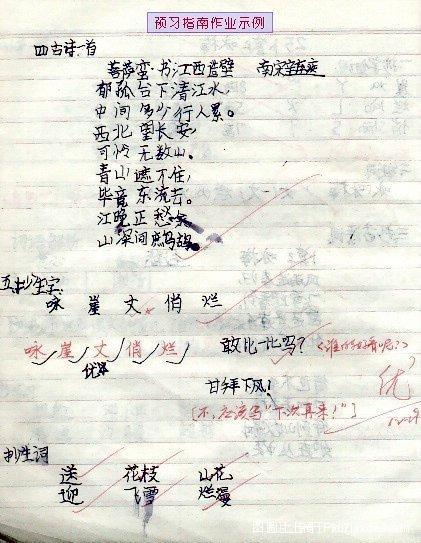 预习指南作业示例
四、古诗一首
菩萨蛮·书江西造壁 南宋辛弃疾
郁孤台下清江水,
中间多少行人累。
西北望长安,
可怜无数山。
青山遮不住,
毕竟东流去。
江晚正愁余,
山深闻鹧鸪。
五、抄生字:
咏 崖 丈 俏 烂
咏 崖 丈 俏 烂 敢比一比吗? <谁的好看呢?>
优
甘拜下风! 优
[不,应该写“下次再来!”]
抄生词
送 花枝 山花
迎 飞雪 烂漫